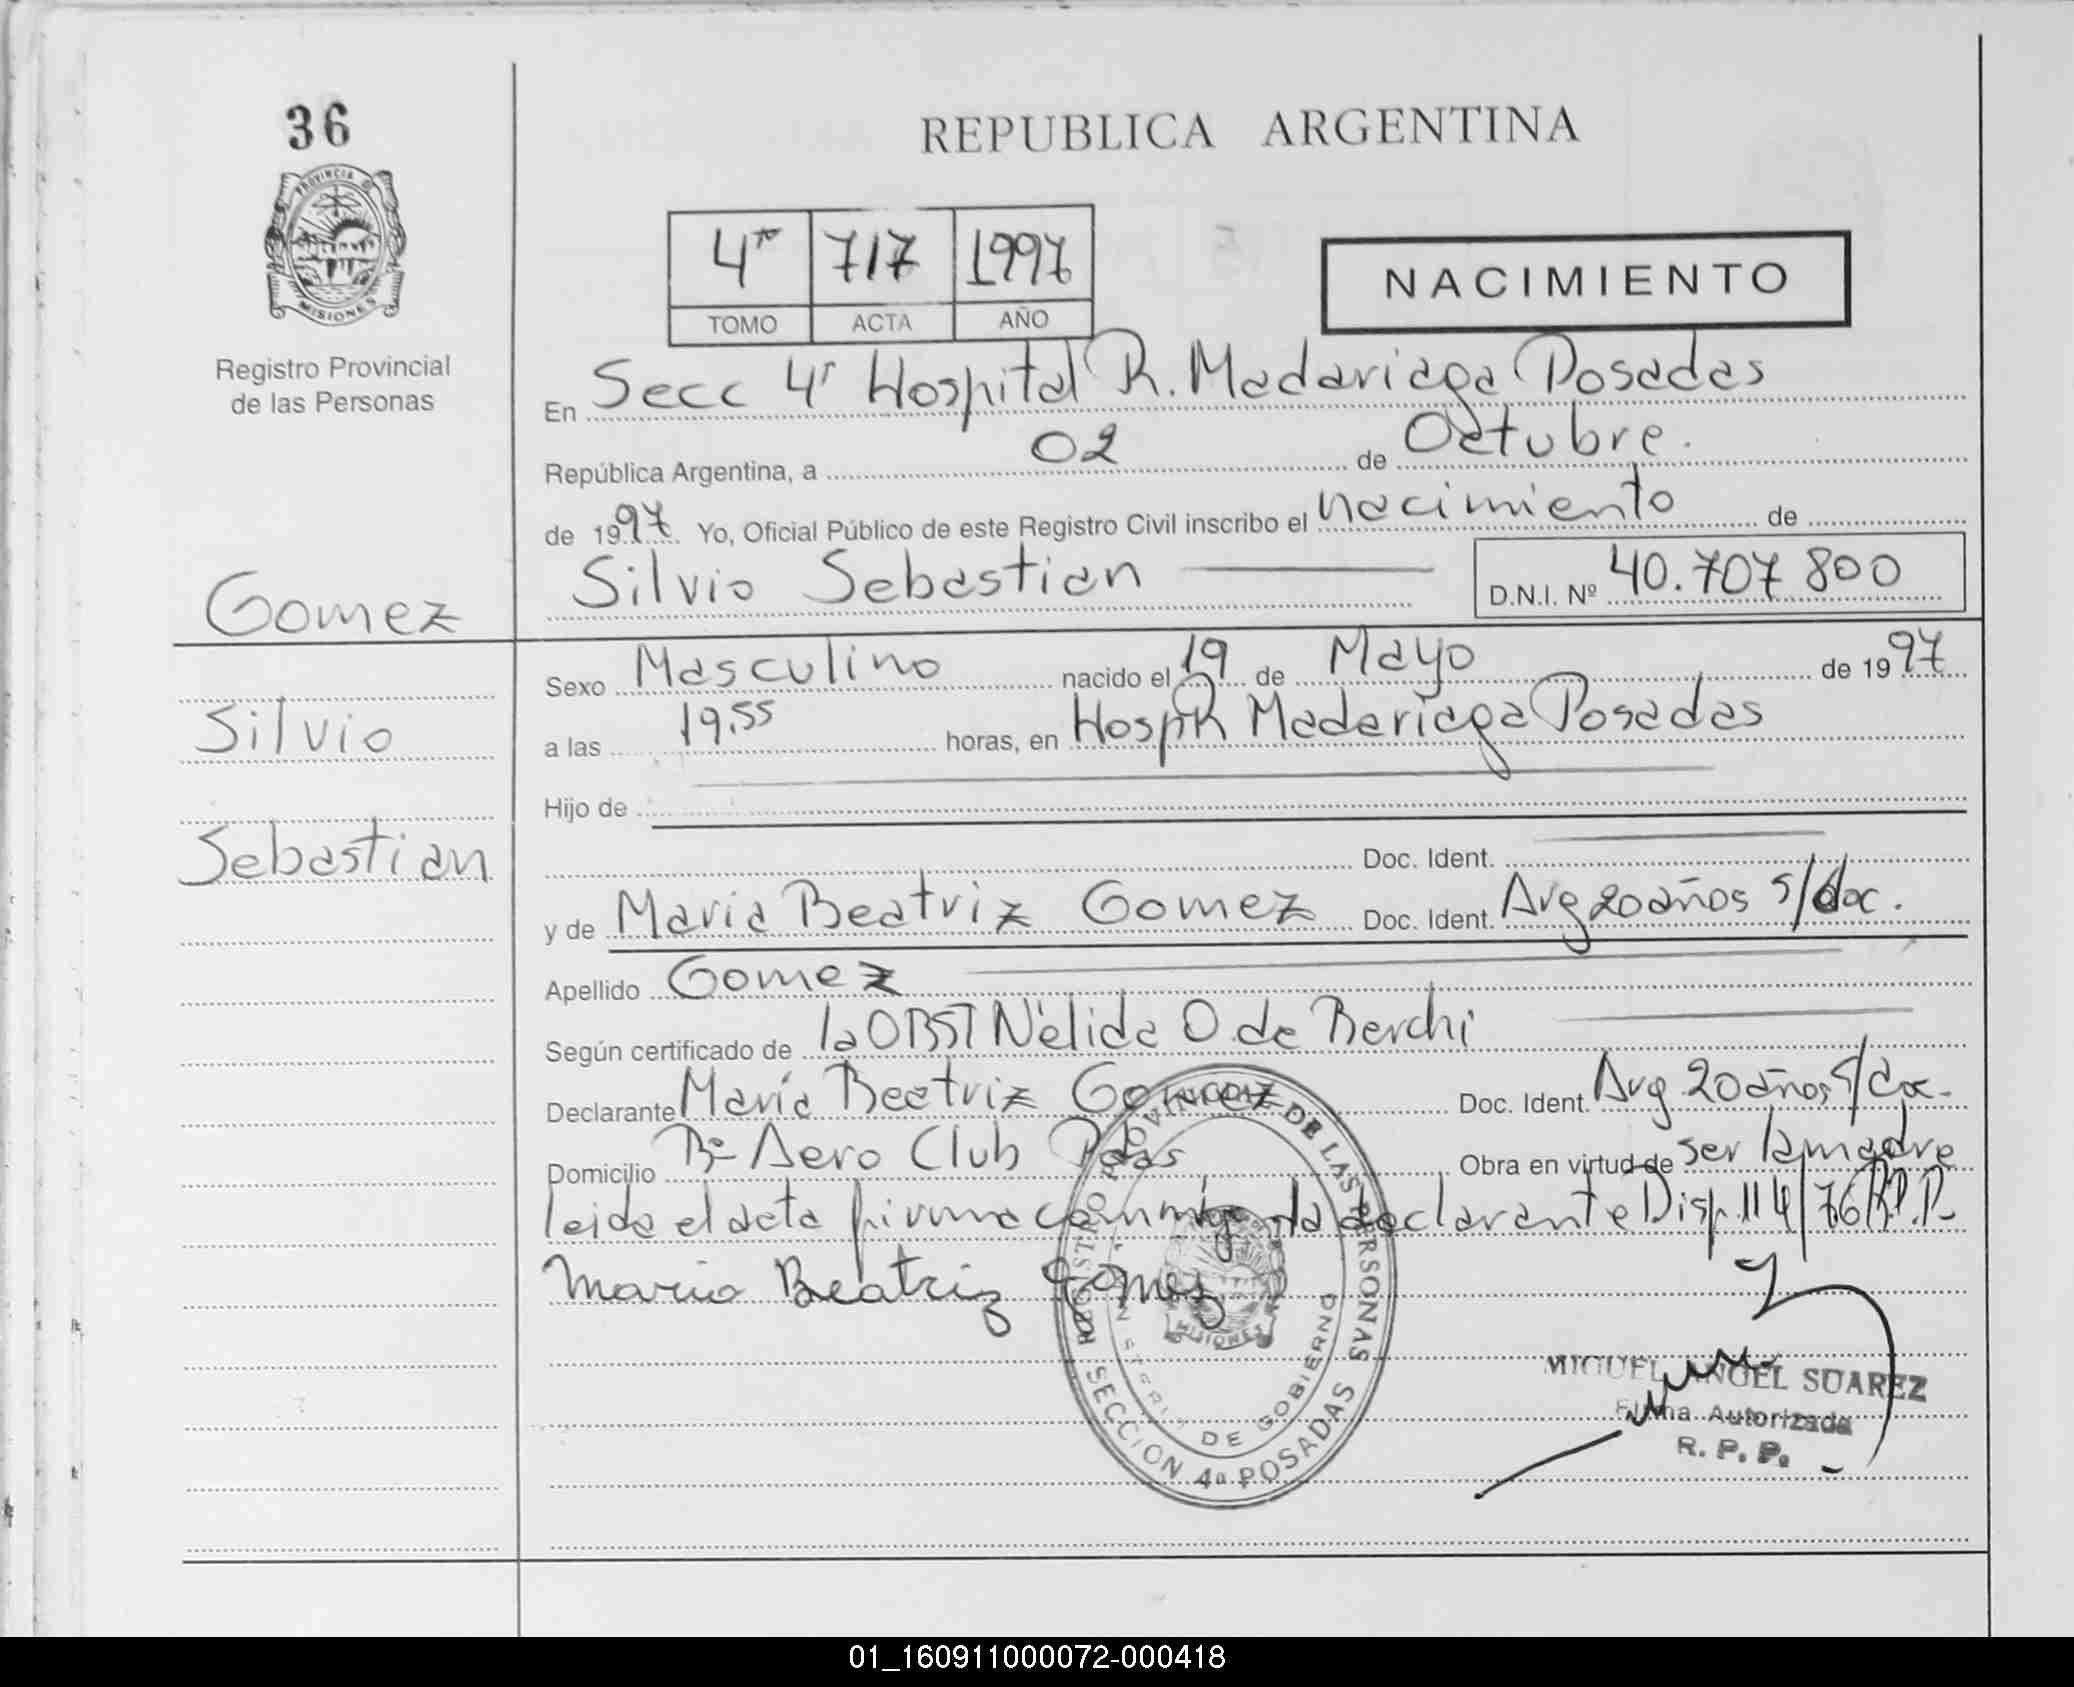 36
REPUBLICA ARGENTINA
PROVINCIA D
MISIONES
Registro Provincial
de las Personas
4to 717 1997
TOMO ACTA AÑO
NACIMIENTO
En Secc 4ª Hospital R. Madariaga Posadas
República Argentina, a 02 de Octubre.
de 1997 Yo, Oficial Público de este Registro Civil inscribo el nacimiento de
Silvio Sebastian D.N.I. Nº 40.707 800
Gomez
Silvio
Sebastian
Sexo Masculino nacido el 19 de Mayo de 1997
a las 19.55 horas, en Hosp R Madariaga Posadas
Hijo de
Doc. Ident.
y de Maria Beatriz Gomez Doc. Ident. Arg 20 años s/doc.
Apellido Gomez
Según certificado de la OBST Nélida O. de Berchi
Declarante María Beatriz Gomez Doc. Ident. Arg 20 años s/doc.
Domicilio Bº Aero Club Pdas Obra en virtud de ser la madre
leida el acta firma conmigo la declarante Disp. 114/76 R.P.P.
Maria Beatriz Gomez
REGISTRO PROVINCIAL DE LAS PERSONAS
MINISTERIO DE GOBIERNO
MISIONES
SECCION 4ª POSADAS
MIGUEL ANGEL SUAREZ
Firma Autorizada
R. P. P.
01_160911000072-000418